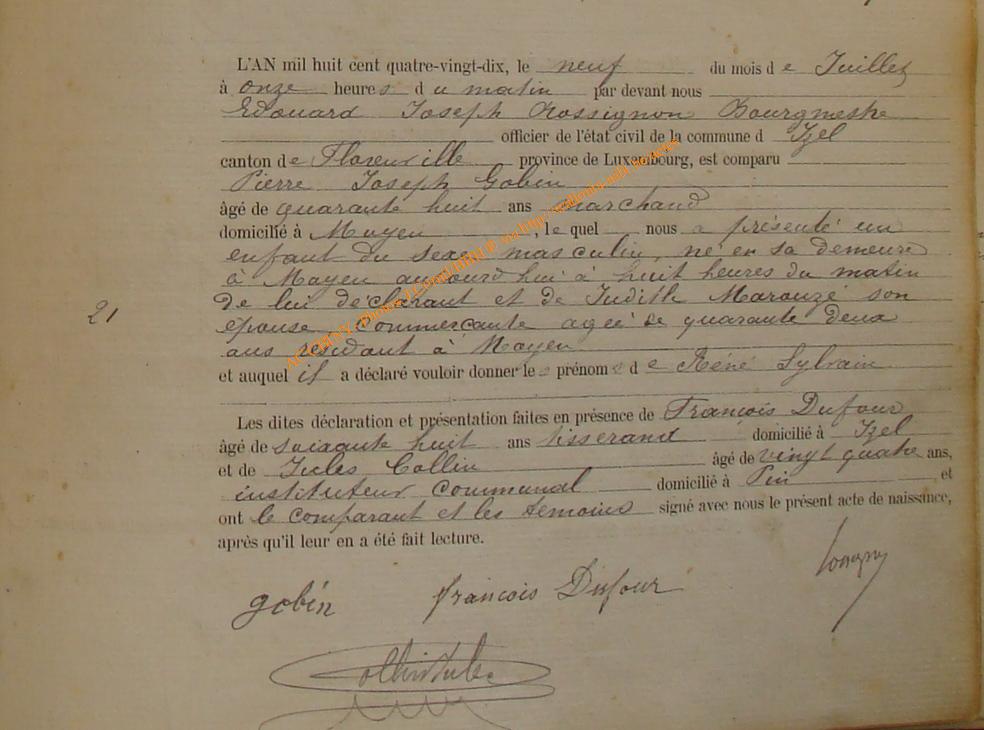 L'AN mil huit cent quatre-vingt-dix, le neuf du mois de Juillet
à onze heures du matin par devant nous
Edouard Joseph Rossignon Bourgmestre
officier de l'état civil de la commune d Izel
canton de Florenville province de Luxembourg, est comparu
Pierre Joseph Gobin
âgé de quarante huit ans marchand
domicilié à Moyen, le quel nous a présenté un
enfant du sexe masculin, né en sa demeure
à Moyen aujourd'hui à huit heures du matin
de lui déclarant et de Judith Marouzé son
épouse, commerçante agée de quarante deux
ans résidant à Moyen
et auquel il a déclaré vouloir donner les prénoms de Réné Sylvain
21
Les dites déclaration et présentation faites en présence de François Dufour
âgé de soixante huit ans tisserand domicilié à Izel
et de Jules Collin âgé de vingt quatre ans,
instituteur communal domicilié à Pin et
ont le comparant et les témoins signé avec nous le présent acte de naissance,
après qu'il leur en a été fait lecture.
gobin françois Dufour
Collin Jules